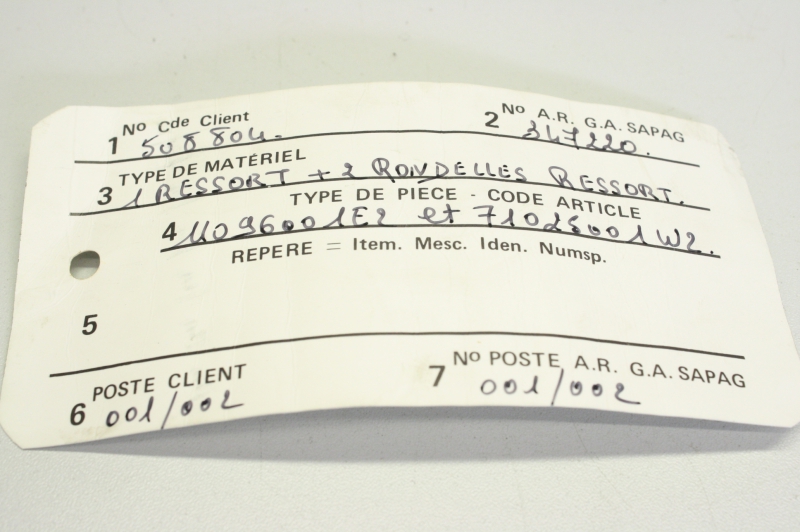 1 No Cde Client
508804.
2 No A.R. G.A. SAPAG
347220.
3 TYPE DE MATÉRIEL
1 RESSORT + 2 RONDELLES RESSORT.
TYPE DE PIÈCE - CODE ARTICLE
4 et
REPERE = Item. Mesc. Iden. Numsp.
5
6 POSTE CLIENT
001/002
7 No POSTE A.R. G.A. SAPAG
001/002